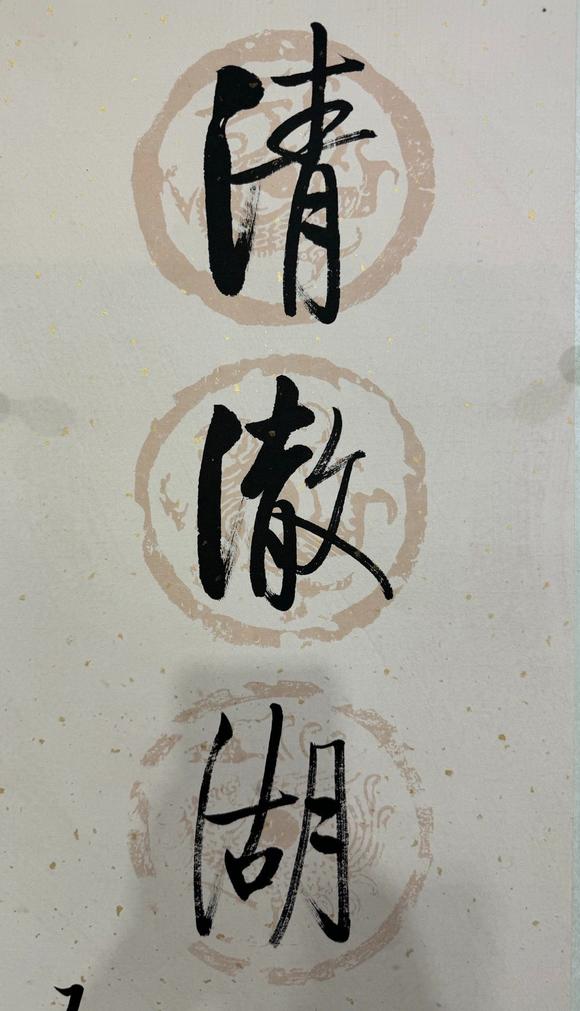 清澈湖